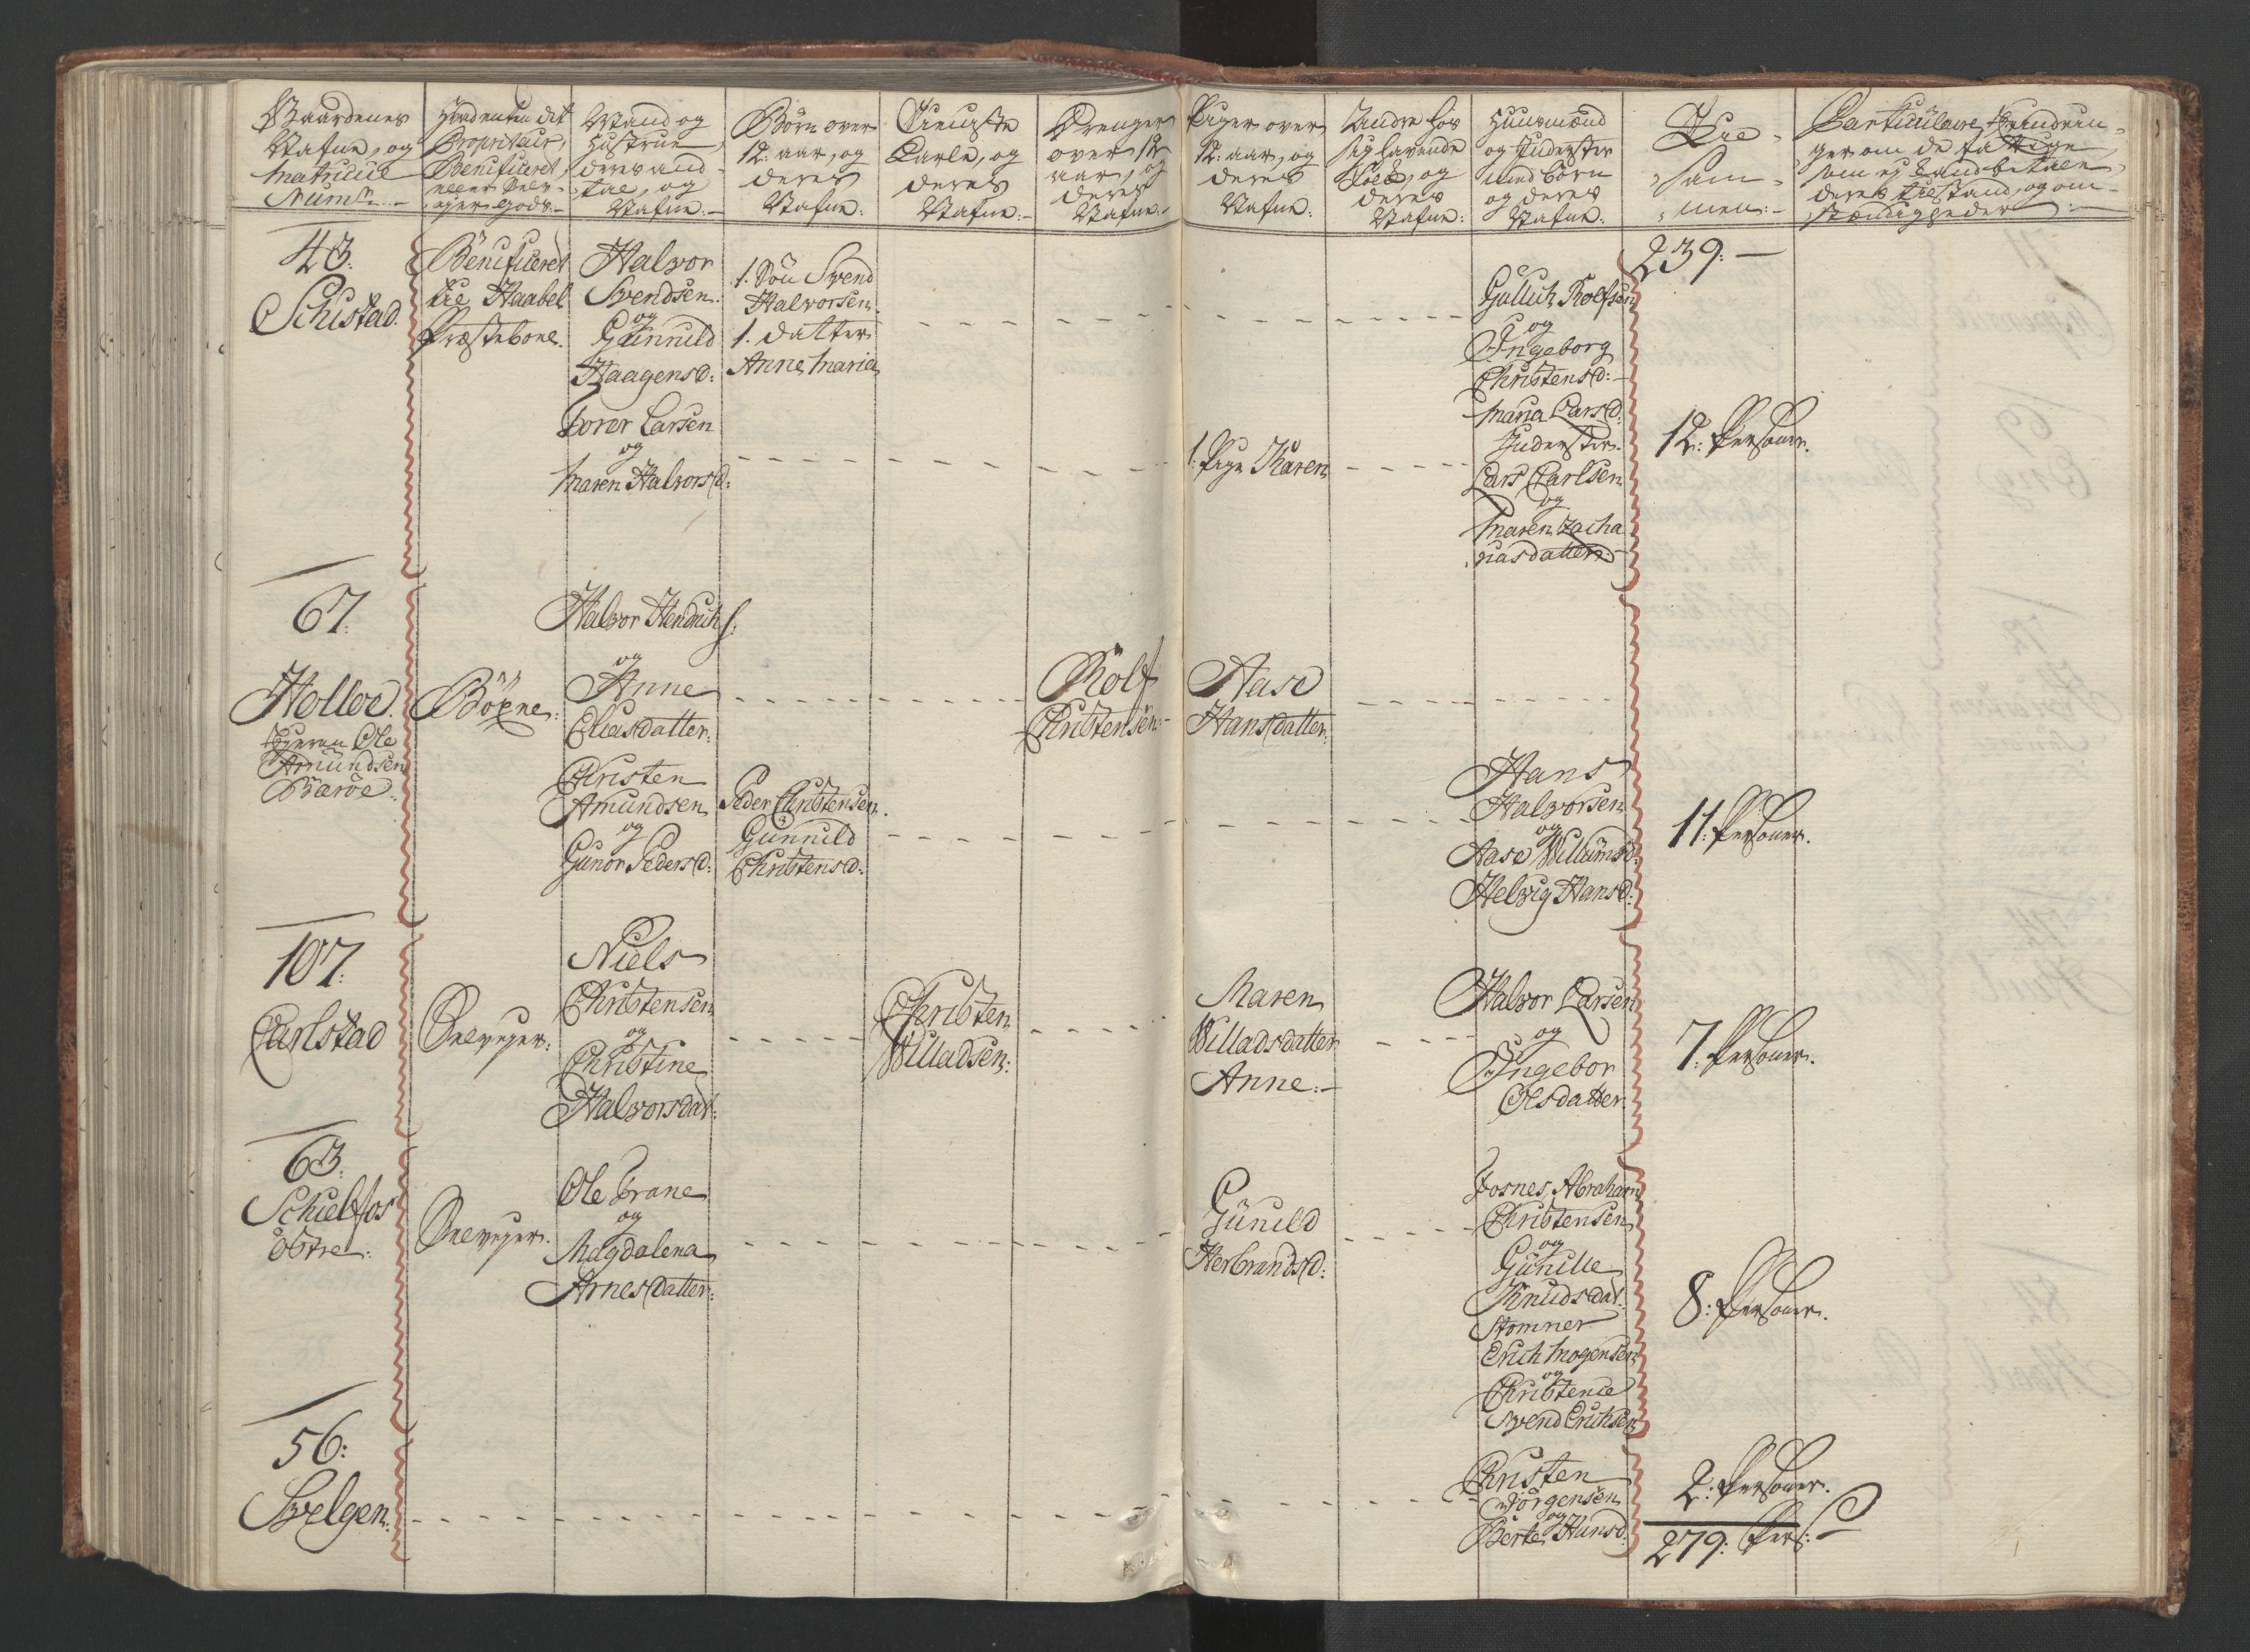 Gaardenes
Nafne, og
Matricul
Num:
Hvad enten det
Proprietair,
Beneficeret,
eller Selv-
eyer Gods.
Mand og
Hustrue,
deres and-
tal, og
Nafne.
Börn over
12: aar, og
deres
Nafne:
Tieniste
Karle, og
deres
Nafne:
Drenger
over 12
aar, og
deres
Nafne:
Piger over
12: aar, og
deres
Nafne:
Andre hos
sig havende
Folck, og
deres
Nafne:
Huusmænd
og Inderster
med börn
og deres
Nafne:
Til-
sam-
men:
Particulaire
ger om de fattige
som ej kand betale
deres tilstand, og om-
stændigheder
43.
Schistad.
Beneficeret
til Maabel
Præstebohl.
Halvor
Svendsen
og
Gunnild
Haagensd:
1. Sön Svend
Halvorsen.
1. datter
Anne Maria
Gullich Rolfsen
og
Ingeborg
Christensd:
Maria Larsd:
Inderster.
Lars Carlsen
og
Maren Zacha
riasdatter
239:
Joror Larsen
og
Maren Halvorsd:
1: Pige Karen
12: Persouer.
67:
Holloe.
Ejeren Ole
Amundsen
Baröe.
Böxne:
Halvor Hendrichs:
og
Anne
Eliasdatter:
Rolf
Christensen:
Aase
Hansdatter:
Christen
Amundsen
og
Gunor Pedersd:
Peder Christensen.
Gunnild
Christensd:
Hans
Halvorsen
og
Aase Willumsd:
Helvig Hansd:
11: Persouer.
107:
Carlstad
Selvejer:
Niels
Christensen
og
Christine
Halvorsdat:
Christen
Willadsen:
Maren
Willadsdatter
Anne:
Halvor Larsen
og
Ingebor
Olsdatter
7: Persouer.
63:
Schielfos
östre:
Selvejer.
Ole Trane
og
Magdalena
Arnesdatter:
Gunild
Herbrandsd:
Fosnes, Abraham
Christensen
og
Gunille
Knudsdat:
Stomner
Erich Mogensen
og
Christence
Svend Erichsen
8: Persouer.
56:
Svelgen:
Christen
Jörgensen
og
Berte Hansd:
2: Persouer.
279: Pers: